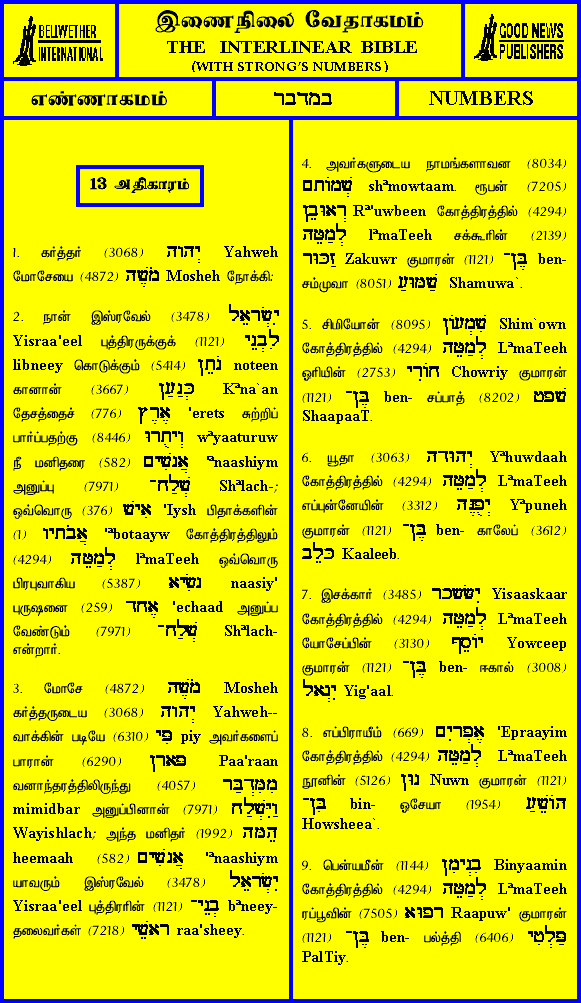 BELLWETHER
INTERNATIONAL
இணைநிலை வேதாகமம்
THE INTERLINEAR BIBLE
(WITH STRONG'S NUMBERS)
GOOD NEWS
PUBLISHERS
எண்ணாகமம்
במדבר
NUMBERS
13 அதிகாரம்
1. கர்த்தர் (3068) יְהוָה Yahweh
மோசேயை (4872) מֹשֶׁה Mosheh நோக்கி:
2. நான் இஸ்ரவேல் (3478) יִשְׂרָאֵל
Yisraa'eel புத்திரருக்குக் (1121) לִבְנֵי
libneey கொடுக்கும் (5414) נֹתֵן noteen
கானான் (3667) כְּנַעַן Kªna`an
தேசத்தைச் (776) אֶרֶץ 'erets சுற்றிப்
பார்ப்பதற்கு (8446) וְיָתֻרוּ wªyaaturuw
நீ மனிதரை (582) אֲנָשִׁים 'ªnaashiym
அனுப்பு (7971) שְׁלַח־ Shªlach-;
ஒவ்வொரு (376) אִישׁ 'Iysh பிதாக்களின்
(1) אֲבֹתָיו 'ªbotaayw கோத்திரத்திலும்
(4294) לְמַטֵּה lªmaTeeh ஒவ்வொரு
பிரபுவாகிய (5387) נָשִׂיא naasiy'
புருஷனை (259) אֶחָד 'echaad அனுப்ப
வேண்டும் (7971) שְׁלַח־ Shªlach-
என்றார்.
3. மோசே (4872) מֹשֶׁה Mosheh
கர்த்தருடைய (3068) יְהוָה Yahweh--
வாக்கின் படியே (6310) פִּי piy அவர்களைப்
பாரான் (6290) פָּארָן Paa'raan
வனாந்தரத்திலிருந்து (4057) מִמִּדְבַּר
mimidbar அனுப்பினான் (7971) וַיִּשְׁלַח
Wayishlach; அந்த மனிதர் (1992) הֵמָּה
heemaah (582) אֲנָשִׁים 'ªnaashiym
யாவரும் இஸ்ரவேல் (3478) יִשְׂרָאֵל
Yisraa'eel புத்திரரின் (1121) בְּנֵי־ bªneey-
தலைவர்கள் (7218) רָאשֵׁי raa'sheey.
4. அவர்களுடைய நாமங்களாவன (8034)
שְׁמוֹתָם shªmowtaam. ரூபன் (7205)
רְאוּבֵן Rª'uwbeen கோத்திரத்தில் (4294)
לְמַטֵּה lªmaTeeh சக்கூரின் (2139)
זַכּוּר Zakuwr குமாரன் (1121) בֶּן־ ben-
சம்முவா (8051) שַׁמּוּעַ Shamuwa`.
5. சிமியோன் (8095) שִׁמְעוֹן Shim`own
கோத்திரத்தில் (4294) לְמַטֵּה LªmaTeeh
ஓரியின் (2753) חוֹרִי Chowriy குமாரன்
(1121) בֶּן־ ben- சப்பாத் (8202) שָׁפָט
ShaapaaT.
6. யூதா (3063) יְהוּדָה Yªhuwdaah
கோத்திரத்தில் (4294) לְמַטֵּה LªmaTeeh
எப்புன்னேயின் (3312) יְפֻנֶּה Yªpuneh
குமாரன் (1121) בֶּן־ ben- காலேப் (3612)
כָּלֵב Kaaleeb.
7. இசக்கார் (3485) יִשָּׂשכָר Yisaaskaar
கோத்திரத்தில் (4294) לְמַטֵּה LªmaTeeh
யோசேப்பின் (3130) יוֹסֵף Yowceep
குமாரன் (1121) בֶּן־ ben- ஈகால் (3008)
יִגְאָל Yig'aal.
8. எப்பிராயீம் (669) אֶפְרָיִם 'Epraayim
கோத்திரத்தில் (4294) לְמַטֵּה LªmaTeeh
நூனின் (5126) נוּן Nuwn குமாரன் (1121)
בִּן־ bin- ஓசேயா (1954) הוֹשֵׁעַ
Howsheea`.
9. பென்யமீன் (1144) בִנְיָמִן Binyaamin
கோத்திரத்தில் (4294) לְמַטֵּה LªmaTeeh
ரப்பூவின் (7505) רָפוּא Raapuw' குமாரன்
(1121) בֶּן־ ben- பல்த்தி (6406) פַּלְטִי
PalTiy.